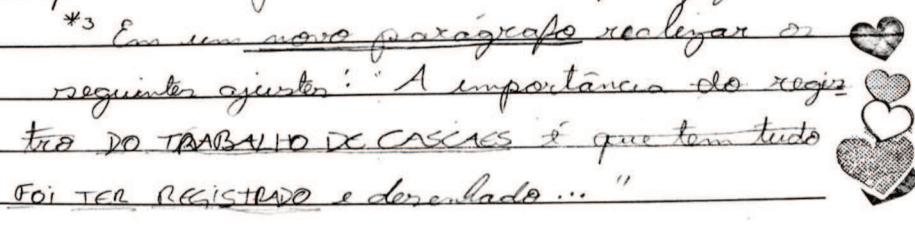 *3 Em um novo parágrafo realizar os
seguintes ajustes: "A importância do regis
tro DO TRABALHO DE CASCAES é que tem tudo
FOI TER REGISTRADO e desenhado..."